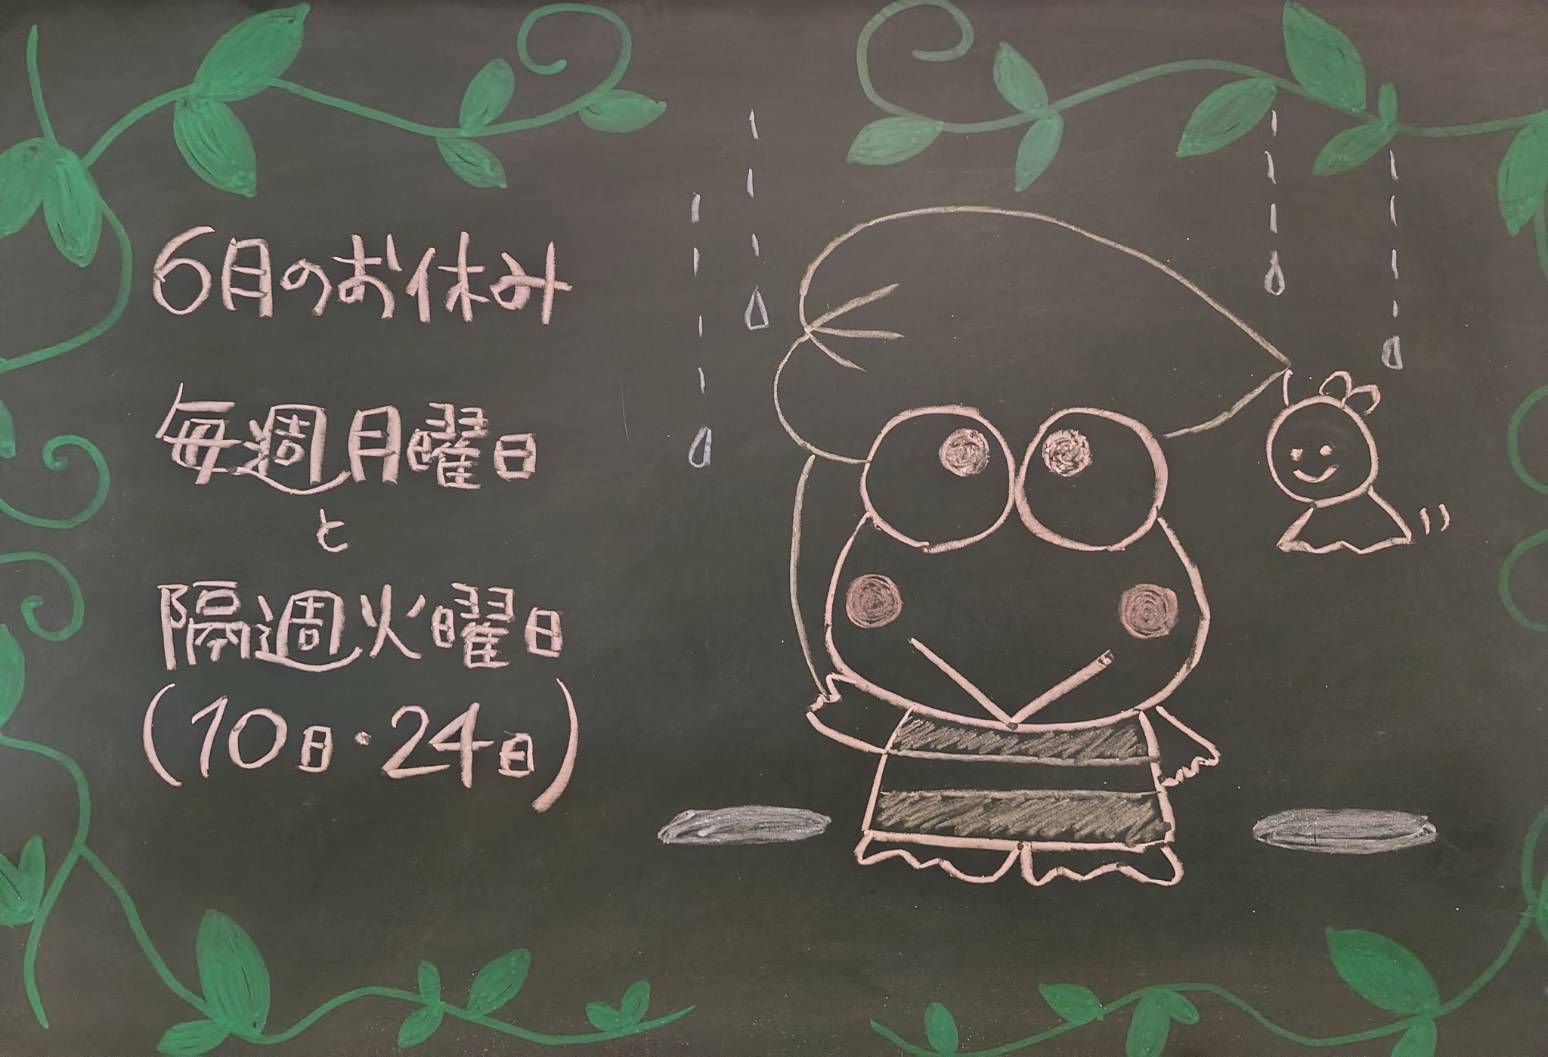 6月のお休み
毎週月曜日
と
隔週火曜日
(10日・24日)